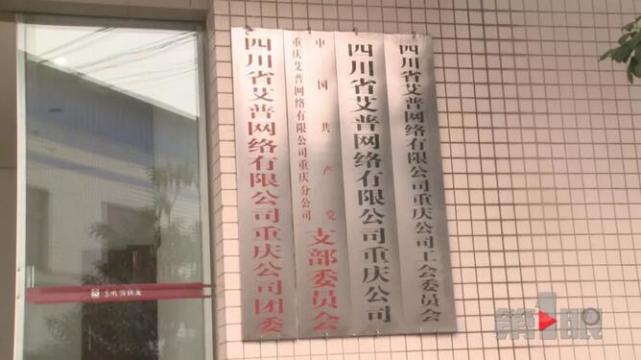 四川省艾普网络有限公司重庆公司工会委员会
四川省艾普网络有限公司重庆公司
中国共产党
重庆艾普网络有限公司重庆分公司
支部委员会
四川省艾普网络有限公司重庆公司团委
第1眼